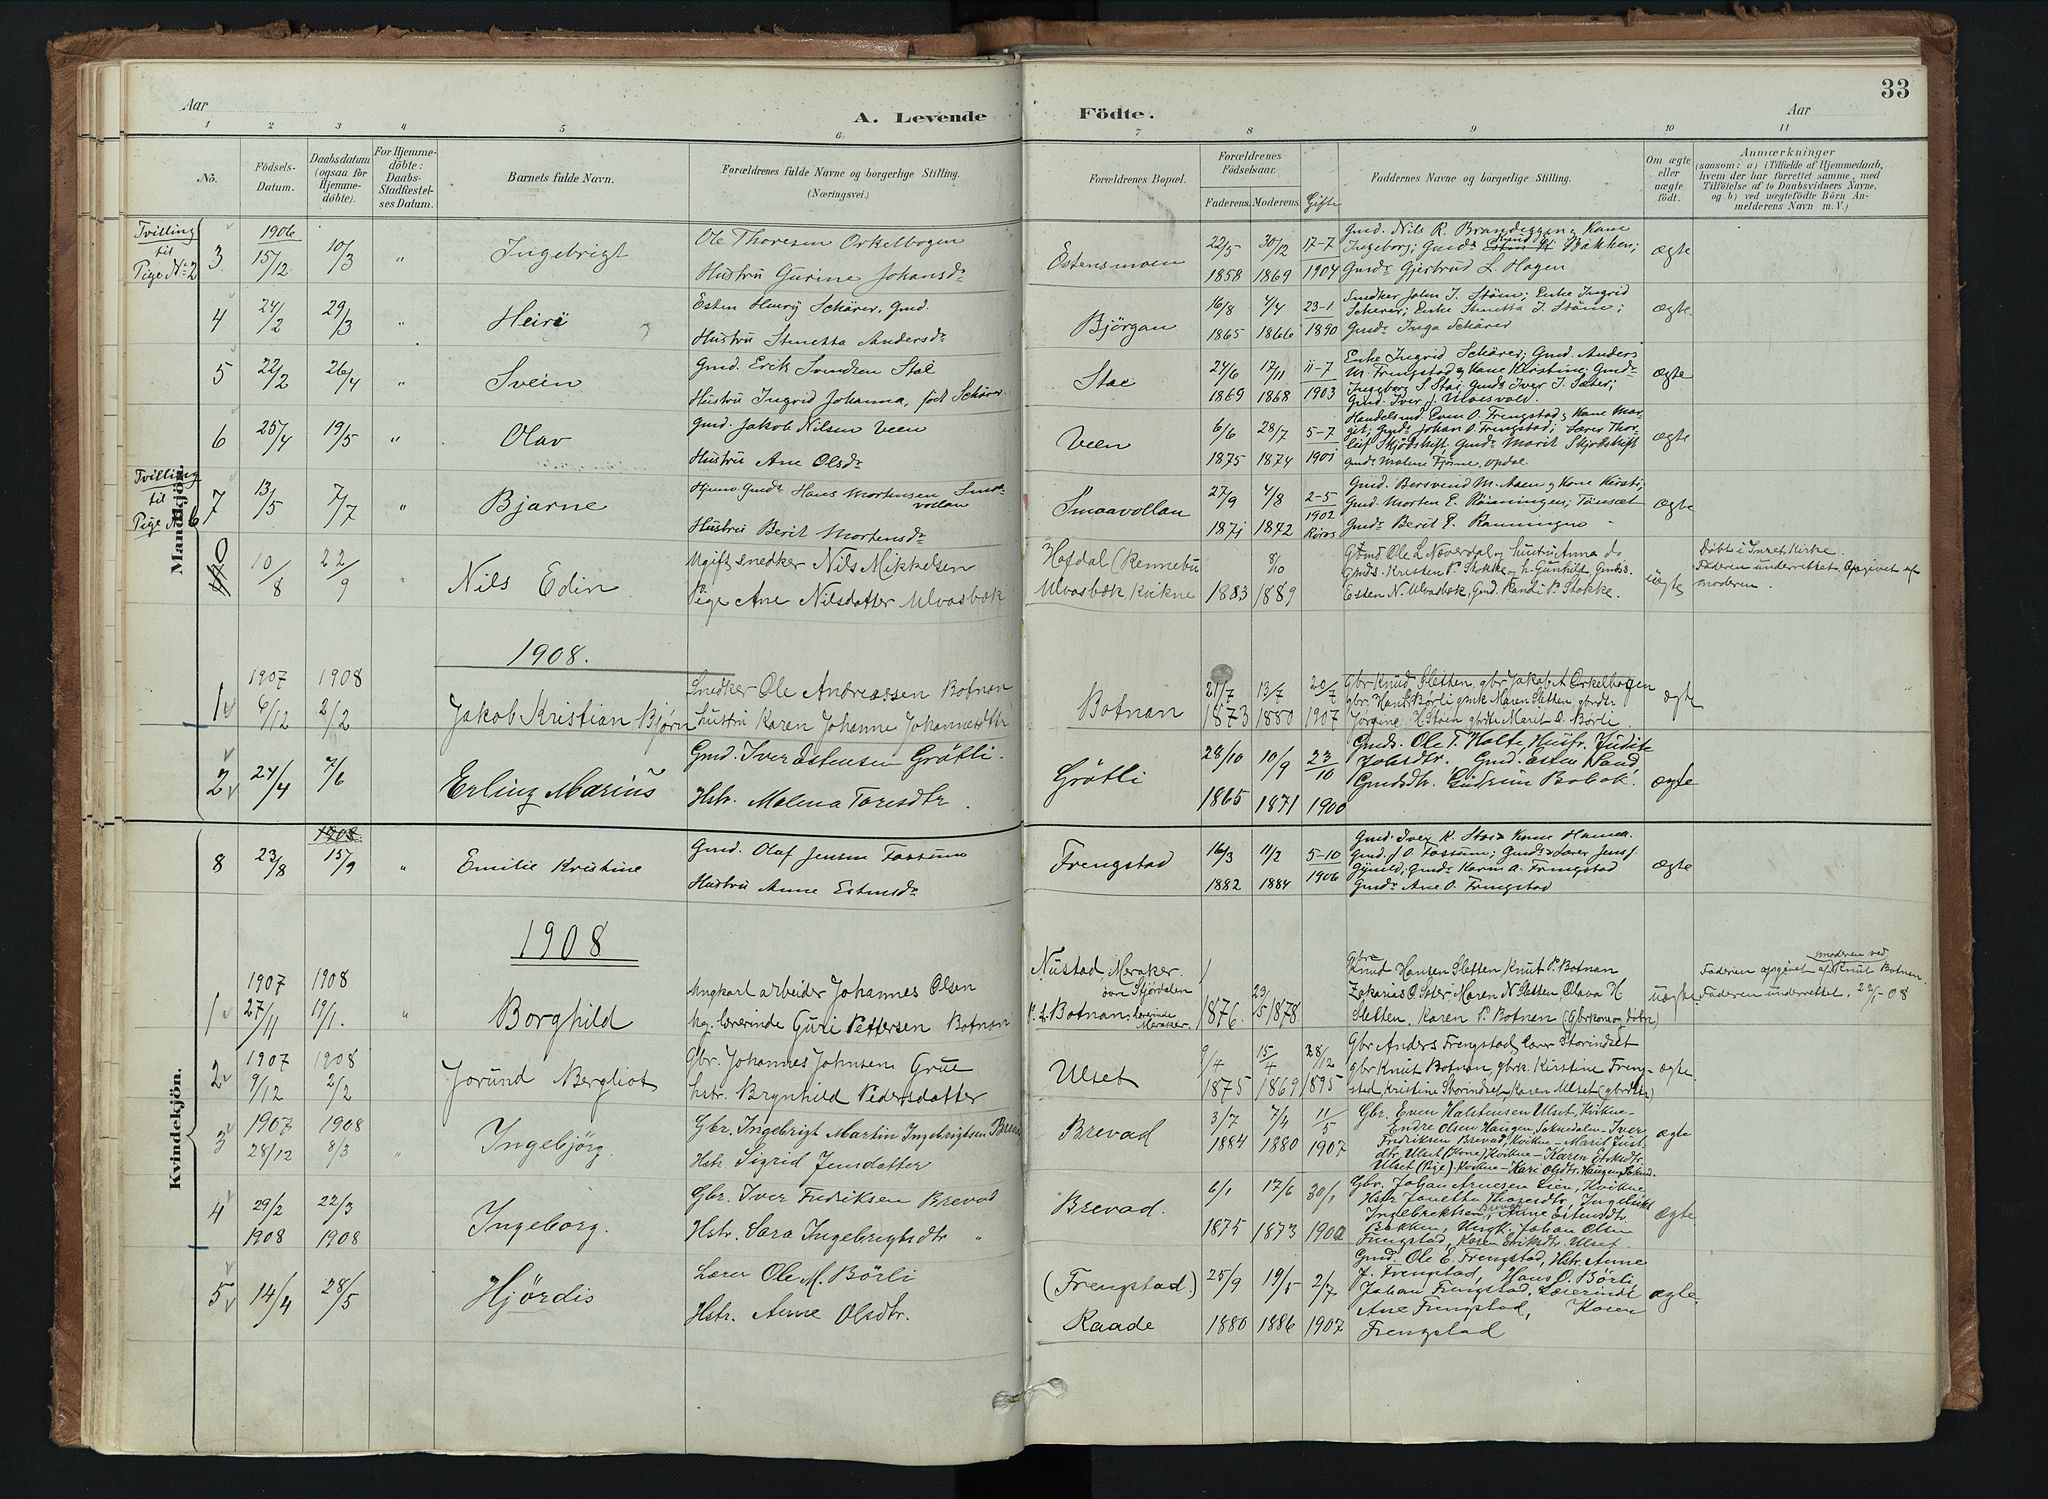 33
Aar
Aar
A. Levende Födte.
1 2 3 4 5 6 7 8 9 10 11
No.
Födsels-Datum.
Daabsdatum (ogsaa for Hjemmedöbte).
For Hjemmedöbte: Daabs-Stadfestelses Datum.
Barnets fulde Navn.
Forældrenes fulde Navne og borgerlige Stilling.
(Næringsvei.)
Forældrenes Bopæl.
Forældrenes Födselsaar.
Faderens. Moderens. Gifte
Faddernes Navne og borgerlige Stilling.
Om ægte eller uægte födt.
Anmærkninger
(saasom: a) i Tilfælde af Hjemmedaab, hvem der har forrettet samme, med Tilföielse af to Daabsvidners Navne, og b) ved uægtefödte Börn Anmelderens Navn m. V.)
Mandkjön.
Tvilling til Pige No 2
3 1906 15/12 10/3 " Ingebrigt
Ole Thoresen Orkelbogen
Hustru Gurine Johansdr
Estensmoen 22/5 1858 30/12 1869 17-7 1904
Gmd. Nils R. Brandeggen og Kone
Ingeborg; Gmds Bakken;
Gmds Gjertrud L. Hagen
ægte
4 24/2 29/3 " Heire
Esten Henry Schärer, Gmd.
Hustru Stenetta Andersdr
Björgan 16/8 1865 4/4 1866 23-1 1890
Snedker John I. Stöen; Enke Ingrid
Schärer; Enke Stenetta I. Stöen;
Gmds Inga Schärer
ægte
5 22/2 26/4 " Svein
Gmd. Erik Svendsen Stai
Hustru Ingrid Johanna, födt Schärer
Stai 24/6 1869 17/11 1868 11-7 1903
Enke Ingrid Schärer; Gmd. Anders
M. Frengstad og Kone Kirstine; Gmds
Ingeborg S. Stai; Gmds Iver I. Sæter;
Gmd. Iver J.
ægte
6 25/4 19/5 " Olav
Gmd. Jakob Nilsen Veen
Hustru Ane Olsdr
Veen 6/6 1875 28/7 1874 5-7 1901
Handelsmd. Even O. Frengstad og Kone Margit; Gmds Johan O. Frengstad; Lærer Thorleif Skjödskift, Gmds Marit Skjödskift
Gmds Malene Fjörne, Opdal.
ægte
Tvilling til Pige No 6
7 13/5 7/7 " Bjarne
Gmds Hans Mortensen Smaavollan
Hustru Berit Mortensdr
Smaavollan 27/9 1871 4/8 1872 2-5 1902 Röros
Gmd. Bersvend M. Aasen og Kone Kirsti;
Gmd. Morten E. Rönningen, Tönset
Gmds Berit E. Rønningen
ægte
10/8 22/9 " Nils Edin
Ugift snedker Nils Mikkelsen
Pige Ane Nilsdatter Ulvasbæk
Hofdal (Rennebu
Ulvasbæk, Kvikne 1883 8/10 1889
Gmd. Ole L. Næverdal og hustru Anna do
Gmds. Kristen P. Stokke og h. Gunhild Gmds.
Esten N. Ulvasbæk, Gmd. Randi P. Stokke.
uægte
Döbt i Inset Kirke.
Faderen underrettet. Opgivet af
moderen
1908.
1 1907 6/12 1908 2/2 Jakob Kristian Bjørn
Snedker Ole Andreassen Botnan
hustru Karen Johanne Johannesdtr
Botnan 21/7 1873 13/7 1880 20/7 1907
gbr Knud Sletten, gbr Jakob A Orkelbogen
gbr. Hans Børli gmk Maren Sletten gbrdtr
Jørgine H Støen gbrdtr Marit O. Børli.
ægte
2 24/4 7/6 Erling Marius
Gmd. Iver Estensen Gröttli.
Hstr. Malena Toresdtr.
Gröttli 28/10 1865 10/9 1871 23/10 1900
Gmds. Ole T. Holte, Husfr. Judite
Johsdtr. Gmd. Esten Sand
Gmdsdtr. Gudrun Bobak.
ægte
Kvindekjön.
8 23/8 15/9 " Emilie Kristine
Gmd. Olaf Jensen Fossum
Hustru Anne Estensdr
Frengstad 16/3 1882 11/2 1884 5-10 1906
Gmd. Iver K. Stai & Kone Hanna.
Gmd. J. O. Fossum; Gmds & Lærer Jens J
Gjinild; Gmds Karin A. Frengstad
Gmds Ane O. Frengstad
ægte
1908
1 1907 27/11 1908 19/1. " Borghild
Ungkarl arbeider Johannes Olsen
og lærerinde Guri Pettersen Botnan
Nustad, Meraker.
øvre Stjördalen
p.t. Botnan, lærerinde Meraker. 1876. 23/5 1878
Gbr
Knud Hansen Sletten Knut P. Botnan
Zakarias O. Maren N Sletten, Olava H
Sletten, Karen P. Botnan (Gbrkone og døtre)
uægte
moderen ved
Faderen opgivet af Knut Botnan.
Faderen underrettet, 22/1-08
2 1907 9/12 1908 2/2 Jorund Bergliot
Gbr. Johannes Johnsen Grue
hstr. Brynhild Pedersdatter
Ulset 9/4 1875 15/4 1869 28/12 1895
Gbr Anders Frengstad, lærer Storindset
gbr Knut Botnan gbrk. Kirstine Frengstad, Kristine Storindset, Karen Ulset (gbrdtr)
ægte
3 1907 28/12 1908 8/3 " Ingebjörg
Gbr. Ingebrigt Martin Ingebrigtsen Brevad
Hstr. Sigrid Jensdatter
Brevad 3/7 1884 7/4 1880 11/5 1907
Gbr. Even Halstensen Ulset, Kvikne-
Endre Olsen Haugen, Soknedalen - Iver
Fredriksen Brevad, Kvikne - Marit Justdtr. Ulset (Kone) Kvikne - Karen Eriksdtr.
Ulset (Pige) Kvikne - Kari Olsdtr. Haugen Sokned.
ægte
4 29/2 1908 22/3 1908 Ingeborg.
Gbr. Iver Fredriksen Brevad
Hstr. Sara Ingebrigtsdtr "
Brevad. 6/1 1875 17/6 1873 30/1 1900
Gbr. Johan Arnesen Lien, Kvikne
Hstr. Janetta Thoresdtr. Ingebrikt
Ingebrektsen Brevad, Anne Estensdtr
Bakken, Ungk. Johan Olsen
Frengstad, Karen Eriksdtr. Ulset.
ægte
5 14/4 28/5 Hjördis
Lærer Ole M. Börli
Hstr. Anne Olsdtr.
(Frengstad.)
Raade 25/9 1880 19/5 1886 2/7 1907
Gmd. Ole E. Frengstad, Hstr. Anne
J. Frengstad, Hans O. Börli,
Johan Frengstad, Lærerinde
Ane Frengstad, Karen
Frengstad
ægte.